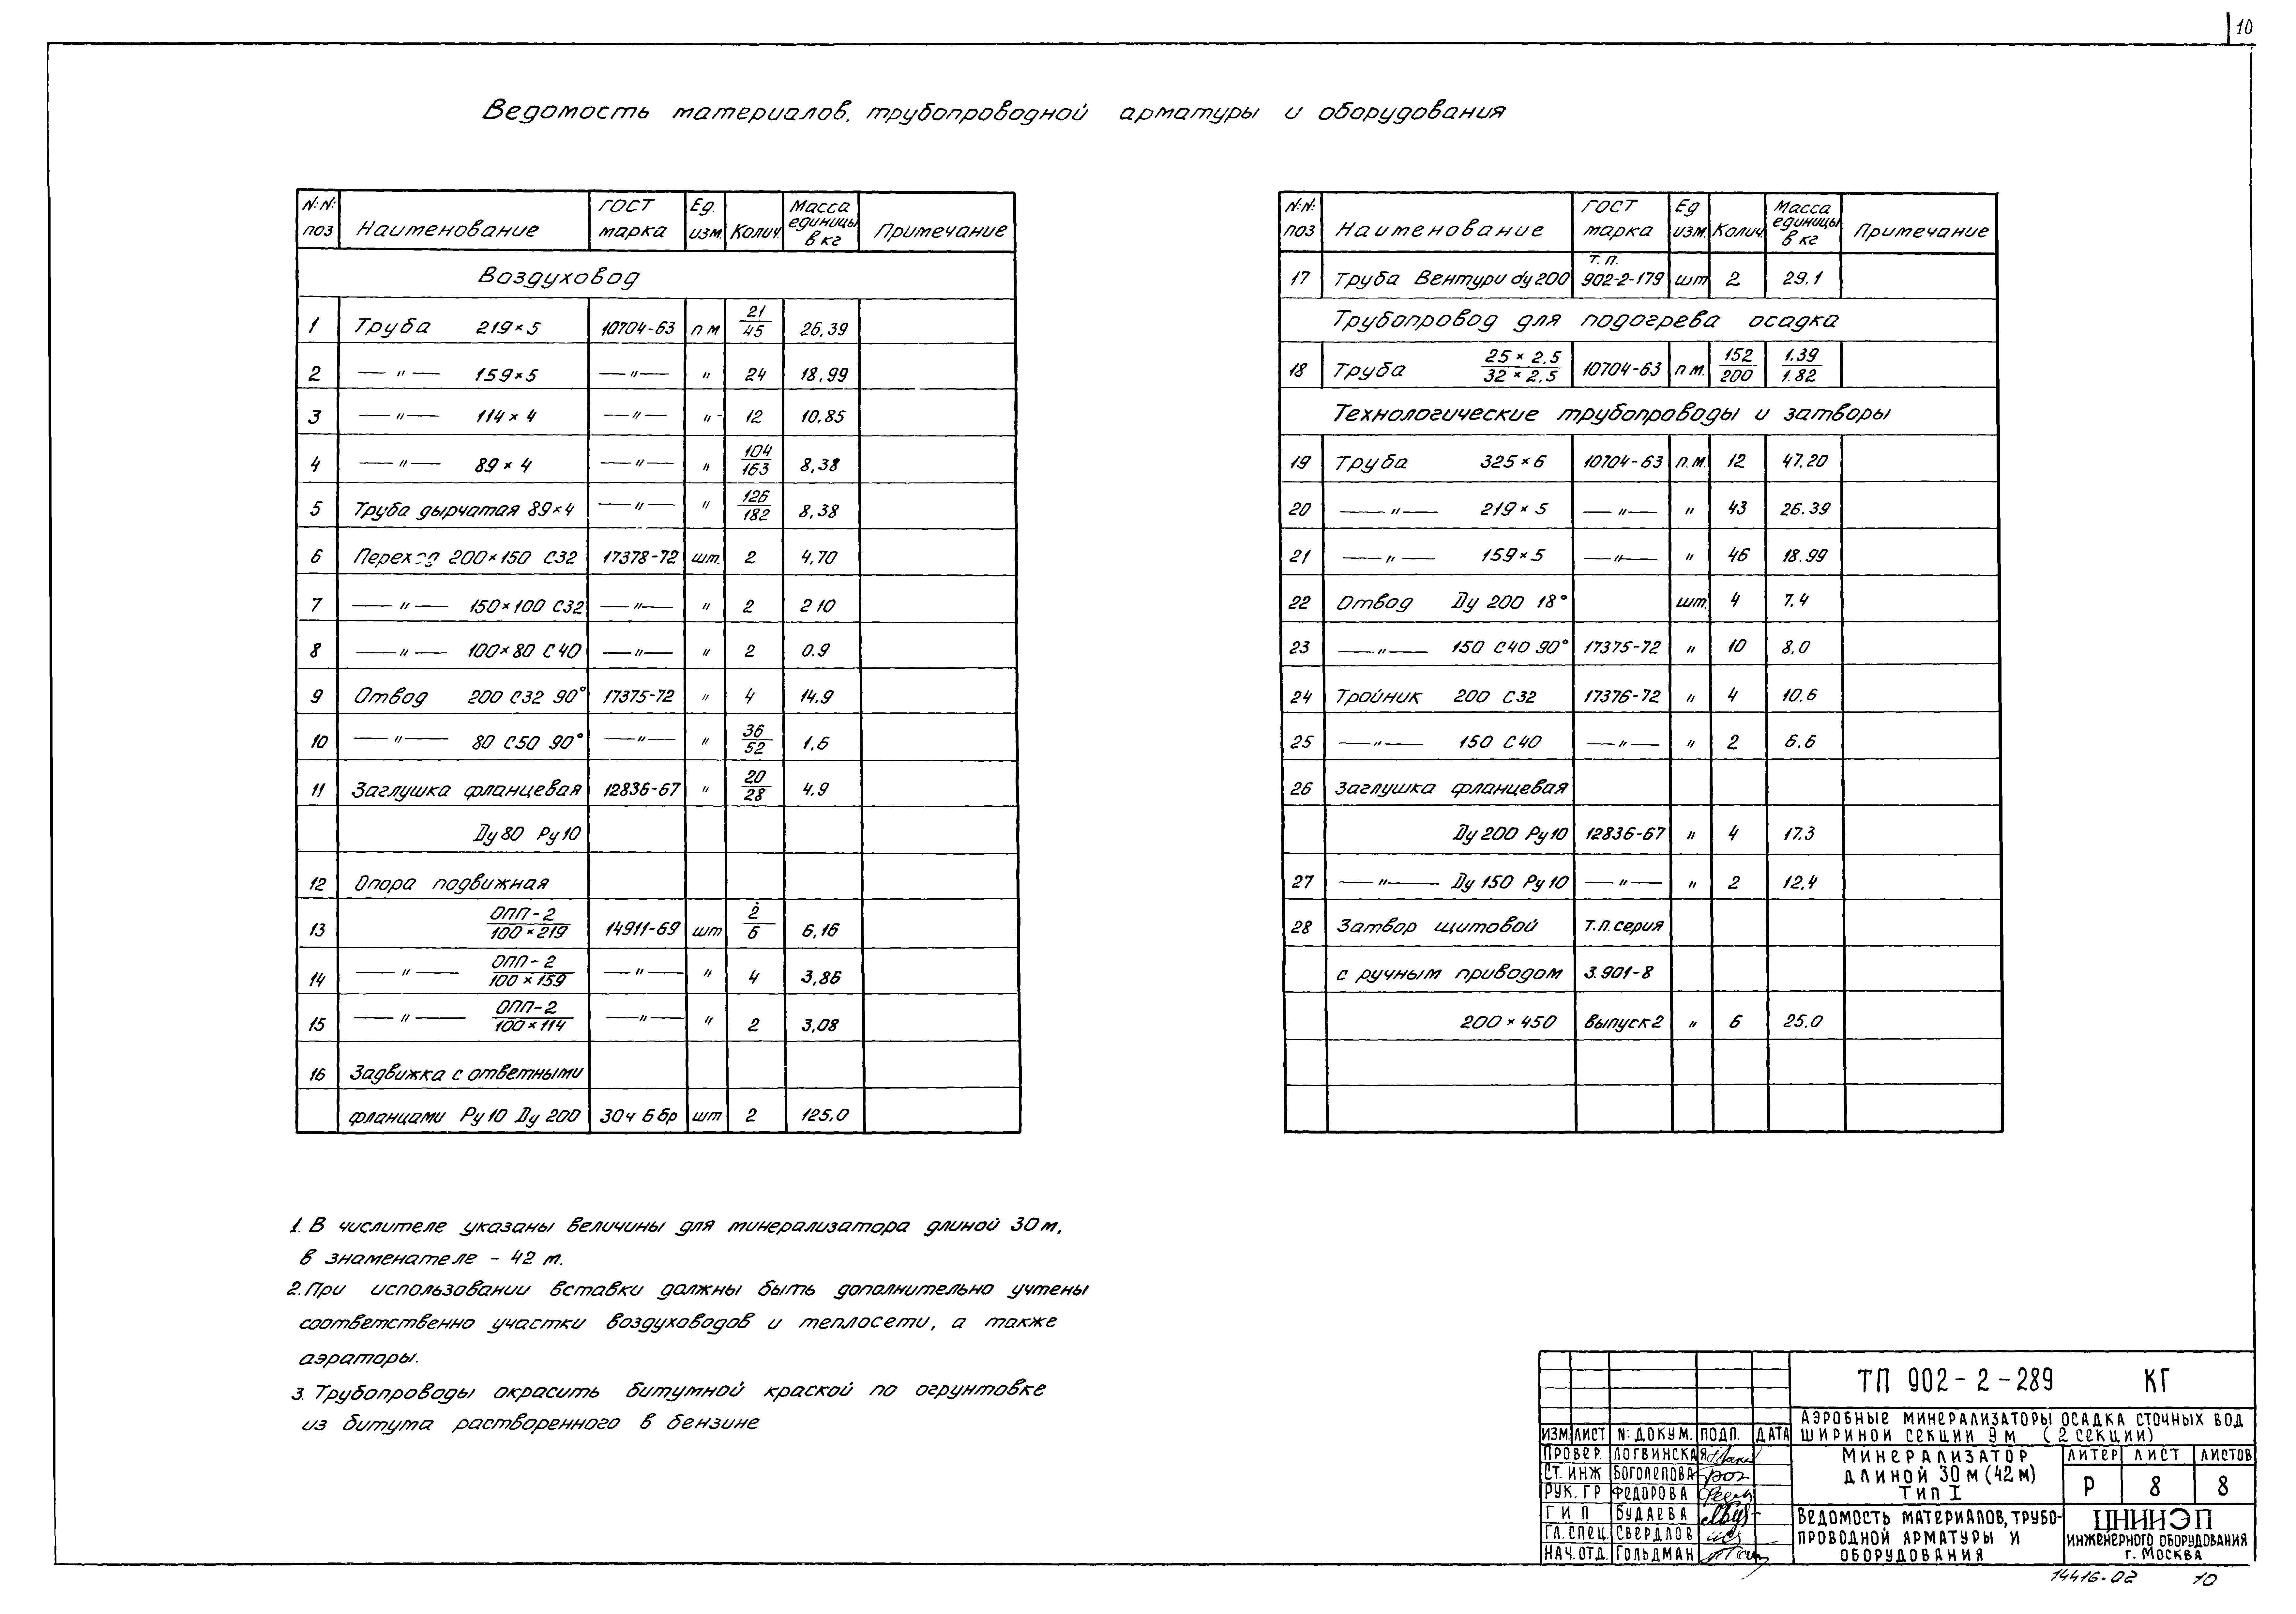 10
Ведомость материалов, трубопроводной арматуры и оборудования
N:N: поз Наименование ГОСТ марка Ед. изм. Колич. Масса единицы в кг Примечание
Воздуховод
1 Труба 219×5 10704-63 п м 21/45 26,39
2 —"— 159×5 —"— " 24 18,99
3 —"— 114×4 —"— " 12 10,85
4 —"— 89×4 —"— " 104/163 8,38
5 Труба дырчатая 89×4 —"— " 126/182 8,38
6 Переход 200×150 С32 17378-72 шт. 2 4,70
7 —"— 150×100 С32 —"— " 2 2 10
8 —"— 100×80 С40 —"— " 2 0.9
9 Отвод 200 С32 90° 17375-72 " 4 14,9
10 —"— 80 С50 90° —"— " 36/52 1,6
11 Заглушка фланцевая 12836-67 " 20/28 4,9
Ду 80 Ру 10
12 Опора подвижная
13 ОПП-2/100×219 14911-69 шт 2/6 6,16
14 —"— ОПП-2/100×159 —"— " 4 3,86
15 —"— ОПП-2/100×114 —"— " 2 3,08
16 Задвижка с ответными
фланцами Ру 10 Ду 200 30ч 6 бр шт 2 125,0
N:N: поз Наименование ГОСТ марка Ед изм. Колич. Масса единицы в кг Примечание
17 Труба Вентури dу 200 Т. П. 902-2-179 шт 2 29.1
Трубопровод для подогрева осадка
18 Труба 25×2,5/32×2,5 10704-63 п м. 152/200 1.39/1.82
Технологические трубопроводы и затворы
19 Труба 325×6 10704-63 п.м. 12 47,20
20 —"— 219×5 —"— " 43 26.39
21 —"— 159×5 —"— " 46 18.99
22 Отвод Ду 200 18° шт. 4 7.4
23 —"— 150 С40 90° 17375-72 " 10 8.0
24 Тройник 200 С32 17376-72 " 4 10,6
25 —"— 150 С40 —"— " 2 6.6
26 Заглушка фланцевая
Ду 200 Ру 10 12836-67 " 4 17.3
27 —"— Ду 150 Ру 10 —"— " 2 12,4
28 Затвор щитовой т.п. серия
с ручным приводом 3.901-8
200×450 выпуск 2 " 6 25.0
1. В числителе указаны величины для минерализатора длиной 30 м,
в знаменателе - 42 м.
2. При использовании вставки должны быть дополнительно учтены
соответственно участки воздуховодов и теплосети, а также
аэраторы.
3. Трубопроводы окрасить битумной краской по огрунтовке
из битума растворенного в бензине
ТП 902-2-289 КГ
Аэробные минерализаторы осадка сточных вод
шириной секции 9 м (2 секции)
Изм. Лист N: докум. Подп. Дата
Провер. Логвинская
Ст. инж Боголепова
Рук. гр Федорова
ГИП Будаева
Гл. спец. Свердлов
Нач. отд. Гольдман
Минерализатор
длиной 30 м (42 м)
Тип I
Литер Лист Листов
Р 8 8
Ведомость материалов, трубо-
проводной арматуры и
оборудования
ЦНИИЭП
инженерного оборудования
г. Москва
14416-02 10